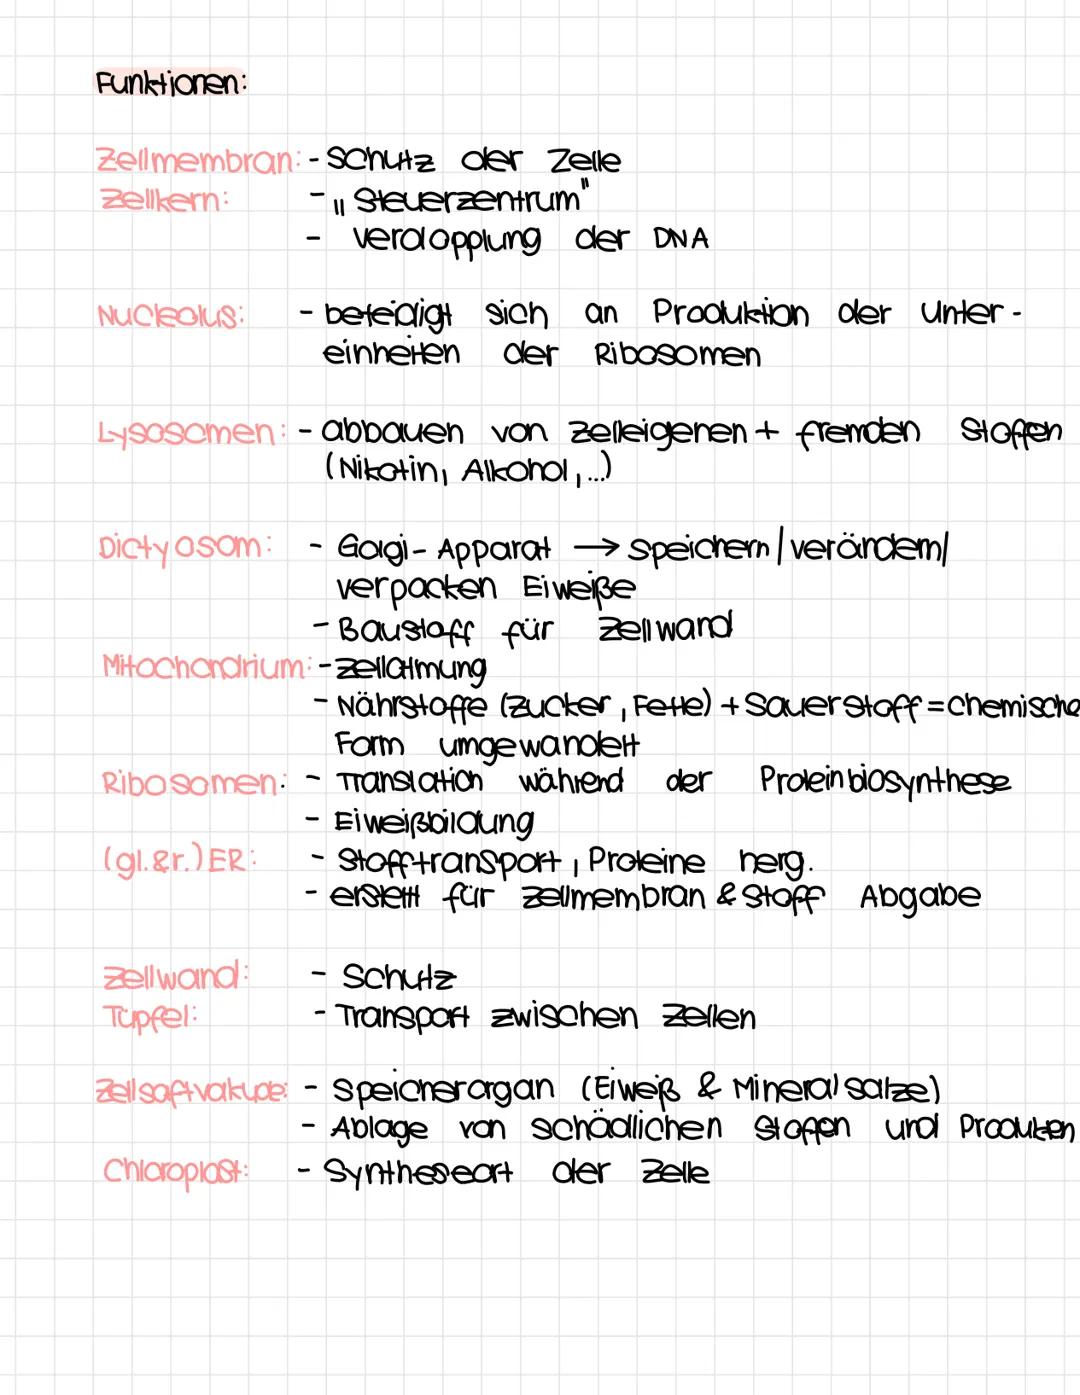 Funktionen:
Zellmembran: - Schutz der Zelle
Zellkern: - "Steuerzentrum"
- Verdopplung der DNA
Nucleolus: - beteidigt sich an Produktion der Unter-
einheiten der Ribosomen
Lysosomen: - abbauen von Zelleigenen + fremden Stoffen
(Nikotin, Alkohol, ...)
Dictyosom: - Golgi-Apparat → speichern/verändern/
verpacken Eiweiße
- Baustoff für Zellwand
Mitochondrium: - Zellatmung
- Nährstoffe (Zucker, Fette) + Sauerstoff = chemische
Form umgewandelt
Ribosomen: - Translation während der Proteinbiosynthese
- Eiweißbildung
(gl.&r.) ER: - Stofftransport, Proteine herg.
- erstellt für Zellmembran & Stoff Abgabe
Zellwand: - Schutz
Tüpfel: - Transport zwischen Zellen
Zellsaftvakuole: - Speicherorgan (Eiweiß & Mineralsalze)
- Ablage von schädlichen Stoffen und Produkten
Chloroplast: - Syntheseort der Zelle